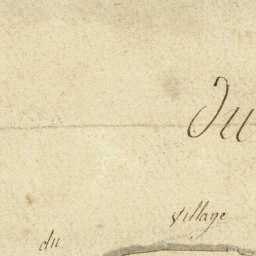 Du
village
du